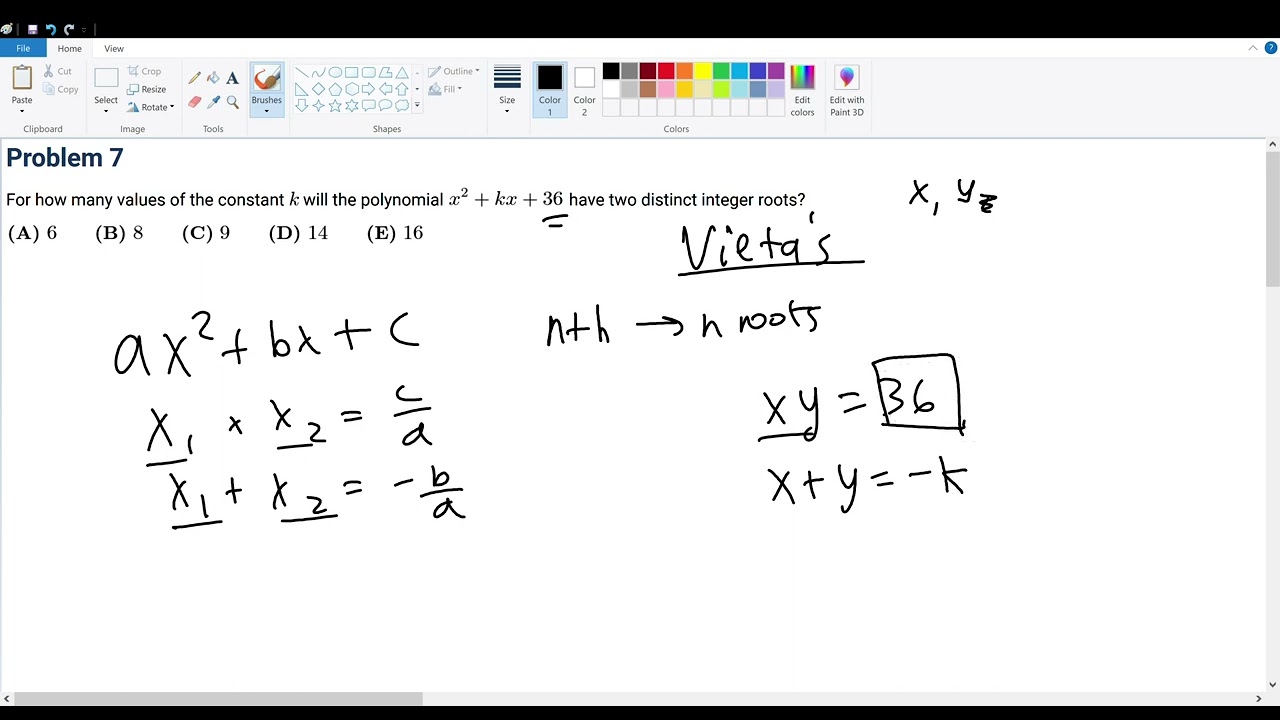 File Home View
Paste
Cut
Copy
Clipboard
Select
Crop
Resize
Rotate
Image
A
Tools
Brushes
Outline
Fill
Shapes
Size
Color 1
Color 2
Edit colors
Colors
Edit with Paint 3D
Problem 7
For how many values of the constant k will the polynomial x² + kx + 36 have two distinct integer roots?
(A) 6 (B) 8 (C) 9 (D) 14 (E) 16
x, y
Vieta's
ax² + bx + c
nth → n roots
x₁ × x₂ = c/a
x₁ + x₂ = -b/a
xy = 36
x + y = -k